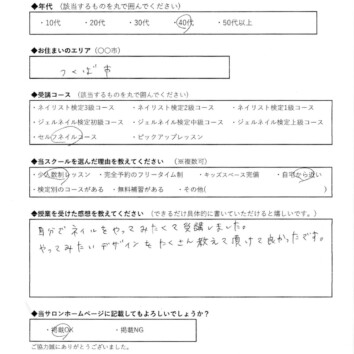 ◆年代（該当するものを丸で囲んでください）
・10代 ・20代 ・30代 ・40代 ・50代以上
◆お住まいのエリア（○○市）
つくば市
◆受講コース（該当するものを丸で囲んでください）
・ネイリスト検定3級コース ・ネイリスト検定2級コース ・ネイリスト検定1級コース
・ジェルネイル検定初級コース ・ジェルネイル検定中級コース ・ジェルネイル検定上級コース
・セルフネイルコース ・ピックアップレッスン
◆当スクールを選んだ理由を教えてください （※複数可）
・少人数制レッスン ・完全予約のフリータイム制 ・キッズスペース完備 ・自宅から近い
・検定別のコースがある ・無料補習がある ・その他( )
◆授業を受けた感想を教えてください（できるだけ具体的に書いていただけると嬉しいです。）
自分でネイルをやってみたくて受講しました。
やってみたいデザインをたくさん教えて頂けて良かったです。
◆当サロンホームページに記載してもよろしいでしょうか？
・掲載OK ・掲載NG
ご協力誠にありがとうございました。